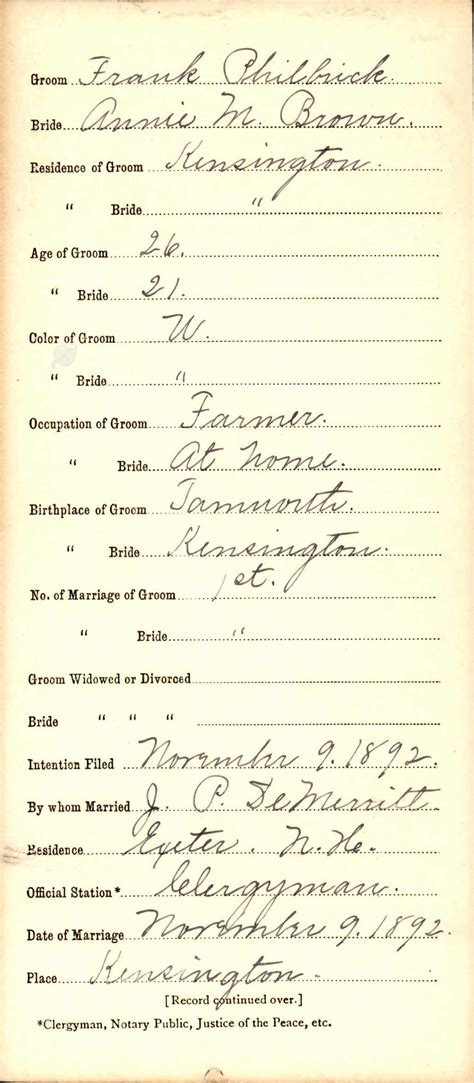 Groom Frank Philbrick.
Bride Annie M. Brown.
Residence of Groom Kensington.
" Bride "
Age of Groom 26.
" Bride 21.
Color of Groom W.
" Bride "
Occupation of Groom Farmer.
" Bride At home.
Birthplace of Groom Tamworth.
" Bride Kensington.
No. of Marriage of Groom 1st.
" Bride "
Groom Widowed or Divorced
Bride " " "
Intention Filed November 9. 1892.
By whom Married J. P. DeMerritt
Residence Exeter. N. H.
Official Station* Clergyman.
Date of Marriage November 9. 1892.
Place Kensington.
[Record continued over.]
*Clergyman, Notary Public, Justice of the Peace, etc.